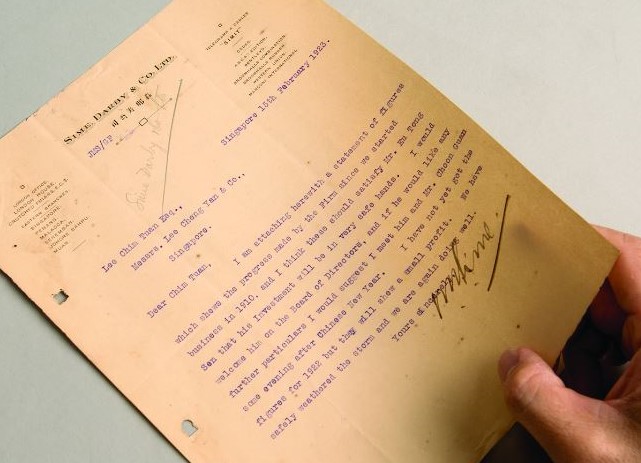 TELEGRAMS & CABLES
"SIMIT"
SIME, DARBY & CO. LTD.
LONDON OFFICE,
EASTERN BRANCHES,
SINGAPORE,
MALACCA,
SEREMBAN,
JLS/GP
Sime Darby
Singapore 15th February 1923.
Lee Chim Tuan Esq.,
Messrs. Lee Cheng Yan & Co.,
Singapore.
Dear Chim Tuan,
I am attaching herewith a statement of figures
which shows the progress made by the Firm since we started
business in 1910, and I think these should satisfy Mr. Eu Tong
Sen that his Investment will be in very safe hands. I would
welcome him on the Board of Directors, and if he would like any
further particulars I would suggest I meet him and Mr. Choon Guan
some evening after Chinese New Year. I have not yet got the
figures for 1922 but they will show a small profit. We have
safely weathered the storm and we are again doing well.
Yours sincerely